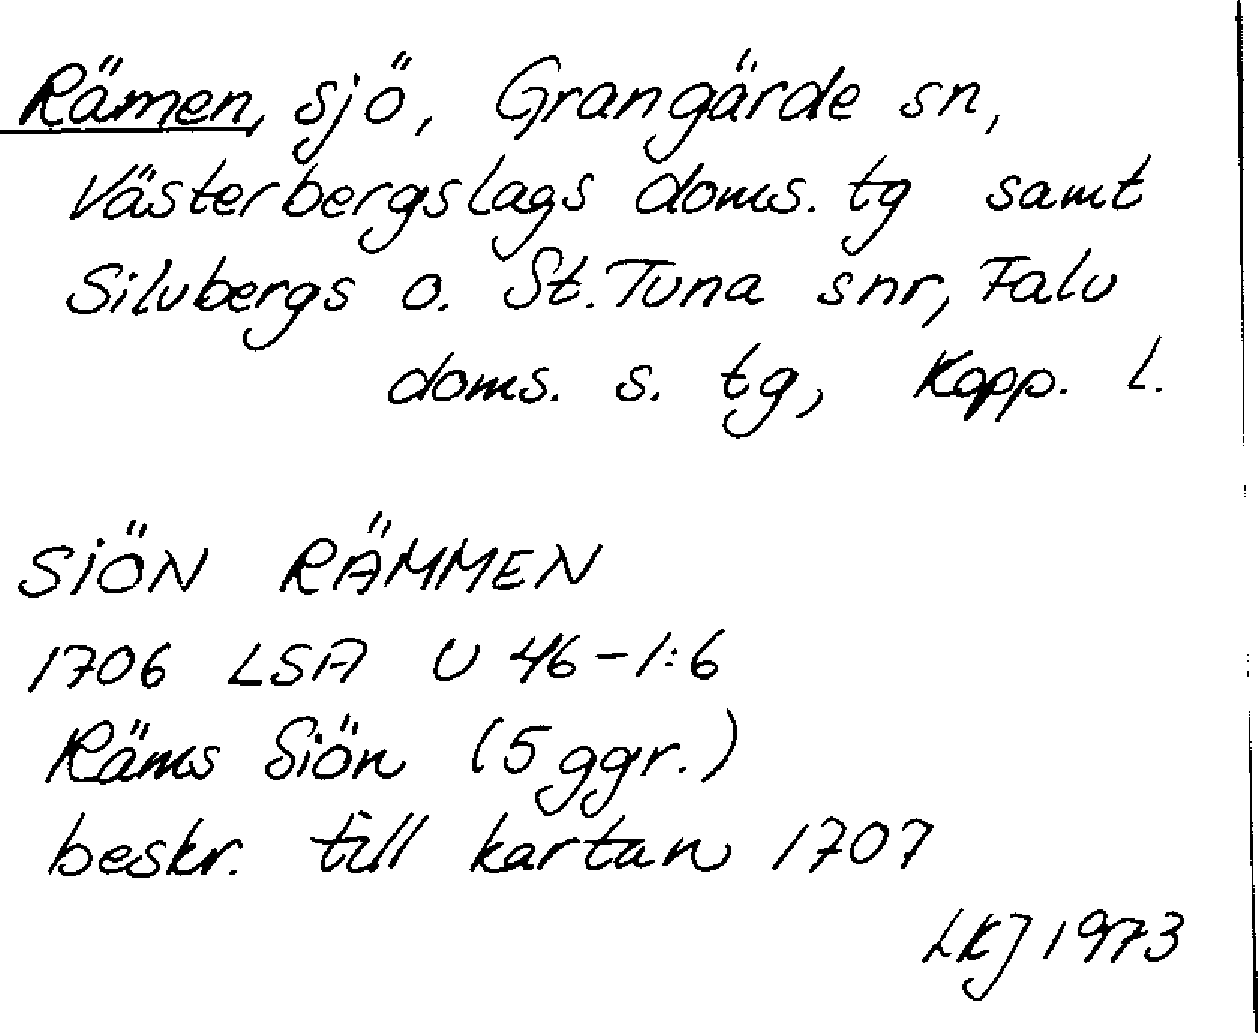 Rämen, sjö, Grangärde sn,
Västerbergslags doms. tg samt
Silvbergs o. St. Tuna snr, Falu
doms. s. tg, Kopp. l.
SIÖN RÄMMEN
1706 LSA U 46-1:6
Räms Siön (5 ggr.)
beskr. till kartan 1707
LKJ 1973